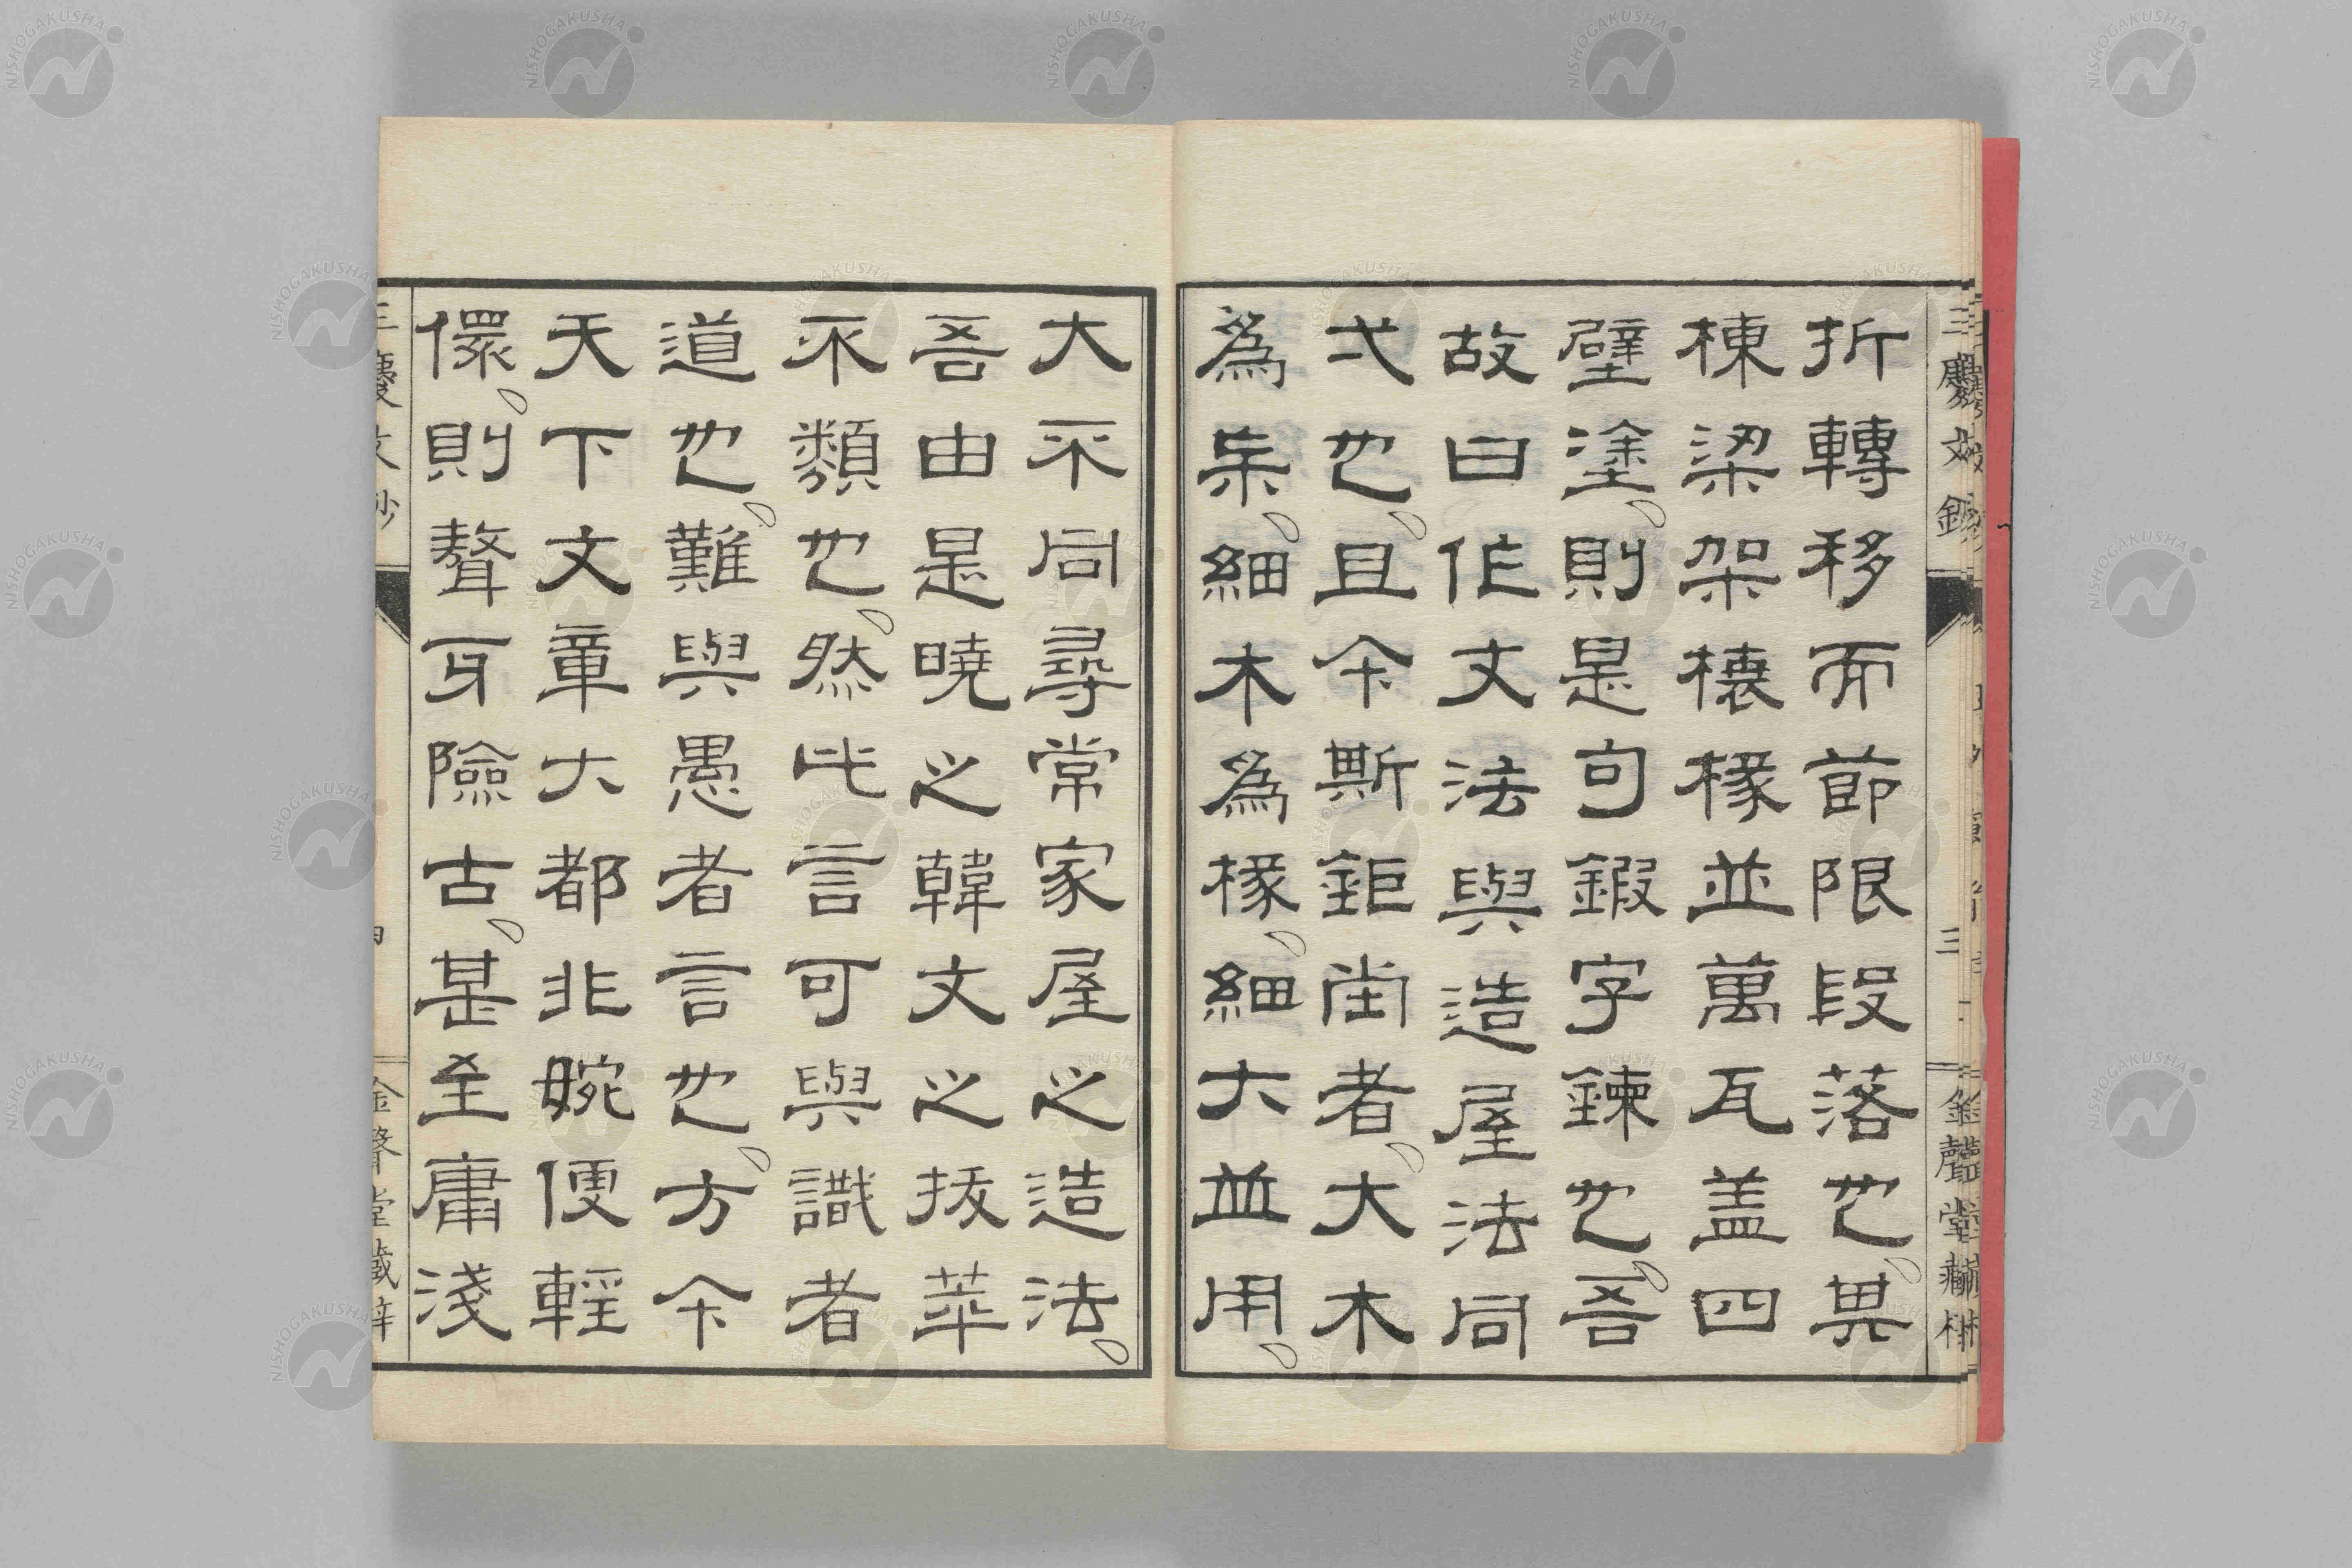 三慶文鈔
三
金聲堂藏梓
折轉移而節限段落也、異
棟梁架欀椽並萬瓦盖四
壁塗、則是句鍜字鍊也、吾
故曰作文法與造屋法同
弌也、且今斯鉅堂者、大木
為杗、細木為椽、細大並用、
大不同尋常家屋之造法、
吾由是曉之韓文之拔萃
不類也、然此言可與識者
道也、難與愚者言也、方今
天下文章大都非婉便輕
儇、則聱牙險古、甚至庸淺
三慶文鈔
四
金聲堂藏梓
NISHOGAKUSHA